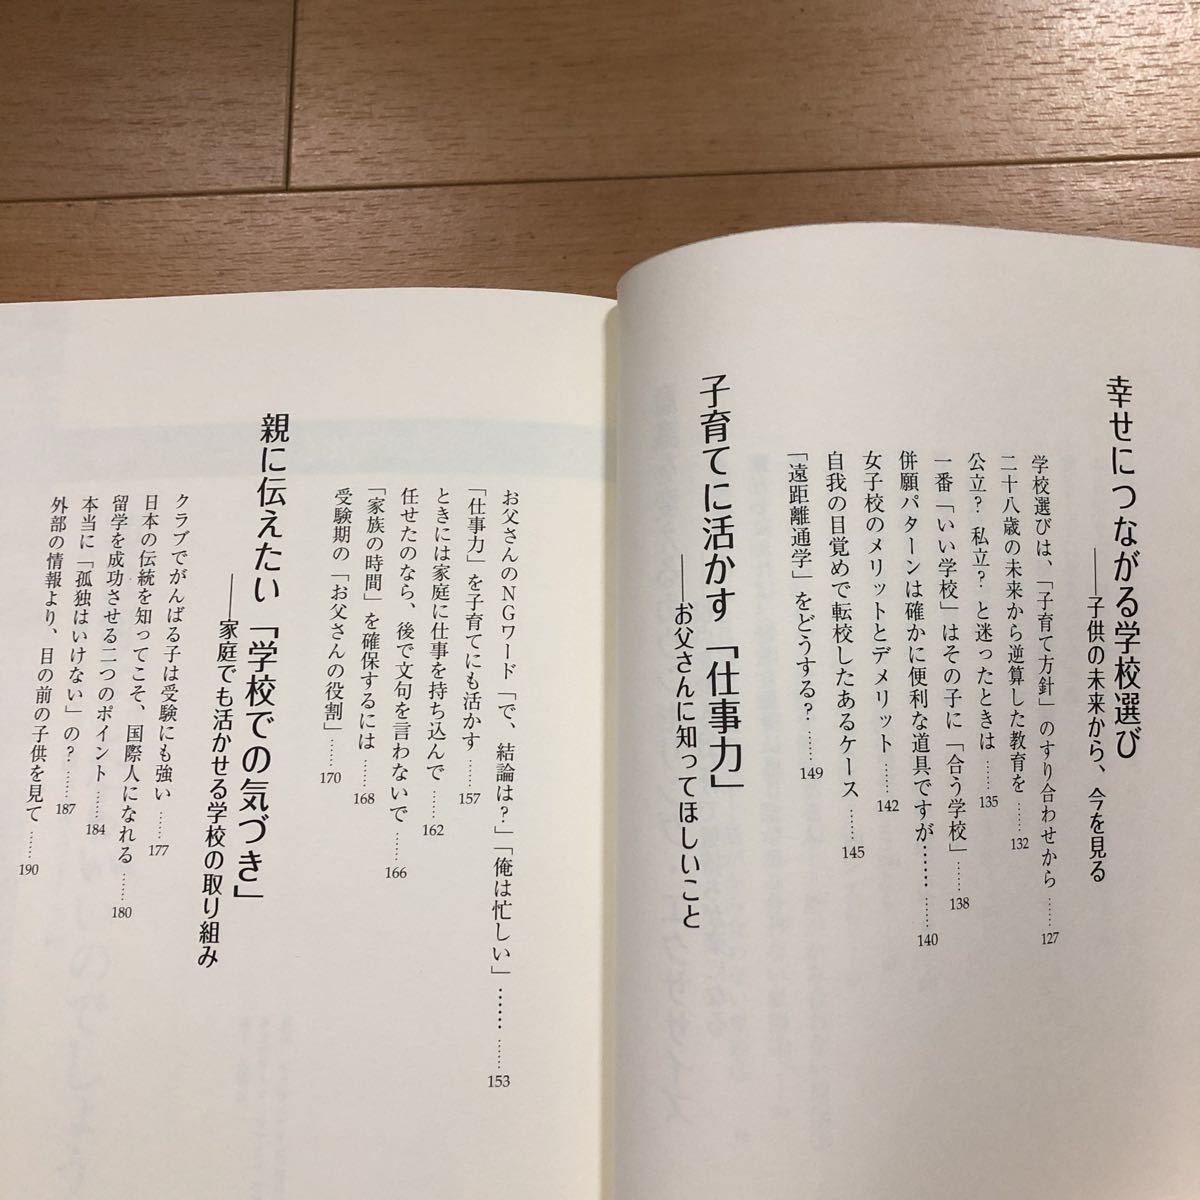 幸せにつながる学校選び
――子供の未来から、今を見る
学校選びは、「子育て方針」のすり合わせから……127
二十八歳の未来から逆算した教育を……132
公立？ 私立？ と迷ったときは……135
一番「いい学校」はその子に「合う学校」……138
併願パターンは確かに便利な道具ですが…………140
女子校のメリットとデメリット……142
自我の目覚めで転校したあるケース……145
「遠距離通学」をどうする？……149
子育てに活かす「仕事力」
――お父さんに知ってほしいこと
お父さんのNGワード「で、結論は？」「俺は忙しい」…………153
「仕事力」を子育てにも活かす……157
ときには家庭に仕事を持ち込んで……162
任せたのなら、後で文句を言わないで……166
「家族の時間」を確保するには……168
受験期の「お父さんの役割」……170
親に伝えたい「学校での気づき」
――家庭でも活かせる学校の取り組み
クラブでがんばる子は受験にも強い……177
日本の伝統を知ってこそ、国際人になれる……180
留学を成功させる二つのポイント……184
本当に「孤独はいけない」の？……187
外部の情報より、目の前の子供を見て……190